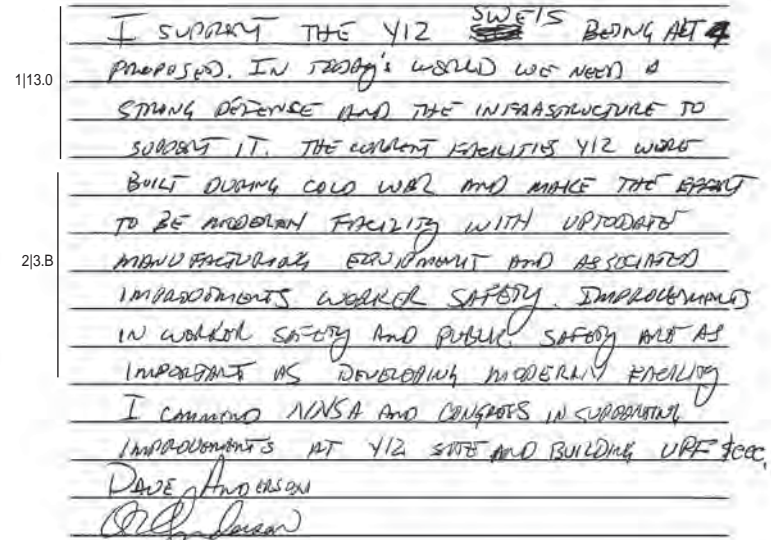 I SUPPORT THE Y12 SWEIS BEING ALT 4
1|13.0
PROPOSED. IN TODAY'S WORLD WE NEED A
STRONG DEFENSE AND THE INFRASTRUCTURE TO
SUPPORT IT. THE CURRENT FACILITIES Y12 WERE
BUILT DURING COLD WAR AND MAKE THE EFFORT
TO BE MODERN FACILITY WITH UPTODATE
2|3.B
MANUFACTURING EQUIPMENT AND ASSOCIATED
IMPROVEMENTS WORKER SAFETY. IMPROVEMENTS
IN WORKER SAFETY AND PUBLIC SAFETY ARE AS
IMPORTANT AS DEVELOPING MODERN FACILITY
I COMMEND NNSA AND CONGRESS IN SUPPORTING
IMPROVEMENTS AT Y12 SITE AND BUILDING UPF
DAVE ANDERSON